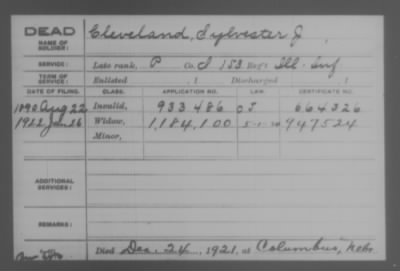 DEAD Cleveland, Sylvester J
NAME OF SOLDIER:
SERVICE: Late rank, P Co. I 153 Reg't Ill. Inf
TERM OF SERVICE: Enlisted , 1 Discharged , 1
DATE OF FILING. CLASS. APPLICATION NO. LAW. CERTIFICATE NO.
1890 Aug 22 Invalid, 933486 664326
1922 Jan 26 Widow, 1,184,100 5-1-20 947524
Minor,
ADDITIONAL SERVICES:
REMARKS:
Died Dec. 24, 1921, at Columbus, Nebr